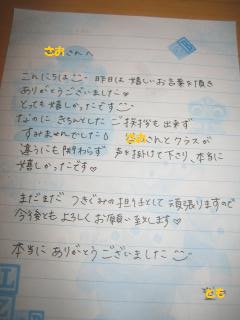 さおさんへ
こんにちは 昨日は 嬉しいお言葉を頂き
ありがとうございました♡
とっても嬉しかったです
なのに きちんとした ご挨拶も出来ず
すみませんでした
さおさんとクラスが
違うにも関わらず 声を掛けて下さり、本当に
嬉しかったです♡
まだまだ つきぐみの担う手として 頑張りますので
今後とも よろしくお願い致します♡
本当に ありがとうございました